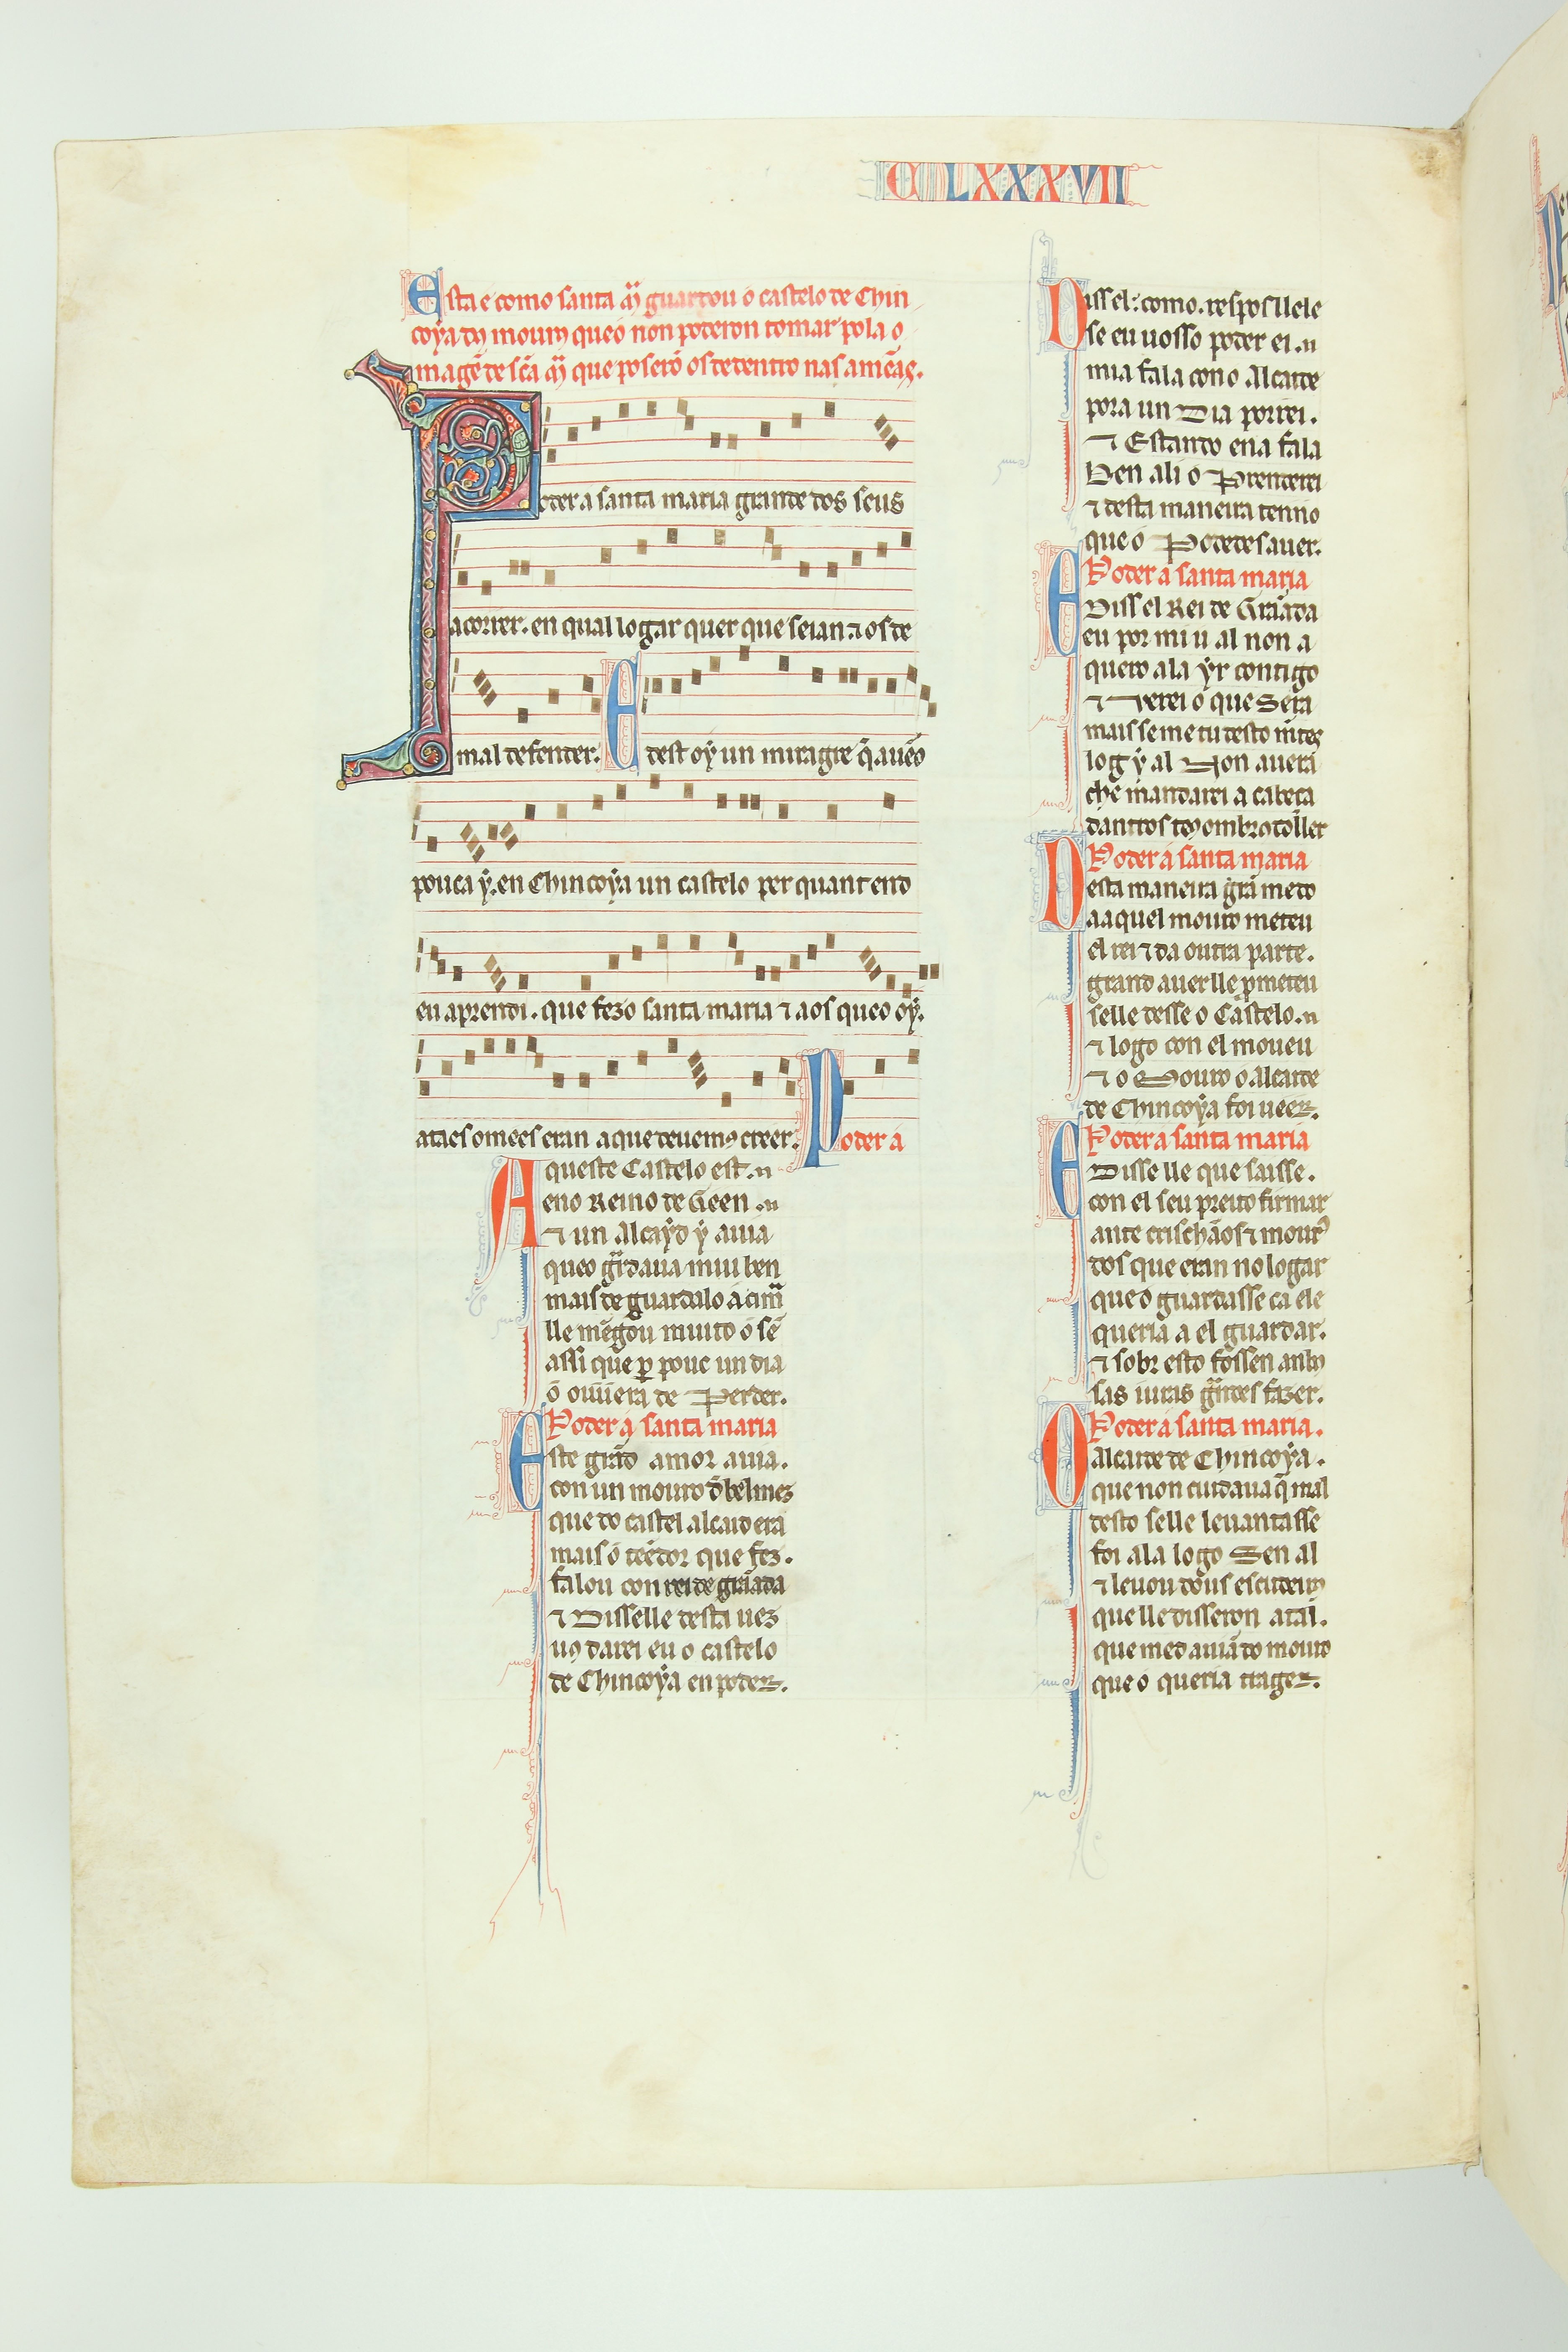 C LXXXVII
Esta e como santa mª guardou o castelo de Chin
coya dos mouros queo non poderon tomar pola o
magẽ de scã mª que poserõ os de dentro nas amẽas.
Poder a santa maria grande dos seus
acorrer. en qual logar quer que seian ⁊ os de
mal defender. E dest oý un miragre q̃ avẽo
pouca ý. en Chincoỳa un castelo per quant end
eu aprendi. que fezo santa maria ⁊ aos queo oý.
ataes omẽes eran a que devemos creer. Poder a
Aqueste Castelo est.
eno Reino de Geen.
⁊ un Alcaỳd ý avia
queo gr̃dava mui ben
mais de guardalo a cim̃a
lle mẽgou muito o sẽ
assi que ꝑ pouc un dia
o ouvera de Perder.
Poder a santa maria
Este grãd amor avia.
con un mouro d̃ belmez
que do castel alcaid era
mais o tẽedor que fez.
falou con rei de grãada
⁊ Disselle desta vez
vos darei eu o castelo
de Chincoỳa en poder.
Diss el: como. respos lle le
se eu vosso poder ei.
mia fala con o Alcaide
pora un Dia porrei.
⁊ Estando ena fala
Ben ali o Prenderei
⁊ desta maneira tenno
que o Podedes aver.
Poder a santa maria
E Diss el Rei de Grãada
eu por mi u al non a
quero ala ỳr contigo
⁊ verei o que Sera
mais se me tu desto mẽtes
log ỳ al Non avera
che mandarei a cabeça
dantros os ombros toller
Poder a santa maria
Desta maneira grã medo
a aquel mouro meteu
el rei ⁊ da outra parte.
grand aver lle ꝓmeteu
selle desse o Castelo.
⁊ logo con el moveu
⁊ o Mouro o alcaide
de Chincoỳa foi veer.
Poder a santa maria
E Disse lle que saisse.
con el seu preito firmar
ante crischãos ⁊ mour̉
dos que eran no logar
que o guardasse ca ele
queria a el guardar.
⁊ sobr esto fossen anbos
sas iuras grãdes fazer.
Poder a santa maria.
O alcaide de Chincoỳa.
que non cuidava q̃ mal
desto selle levantasse
foi ala logo Sen al
⁊ levou doũs escudeiros
que lle disseron atal.
que med aviã do mouro
que o queria trager.